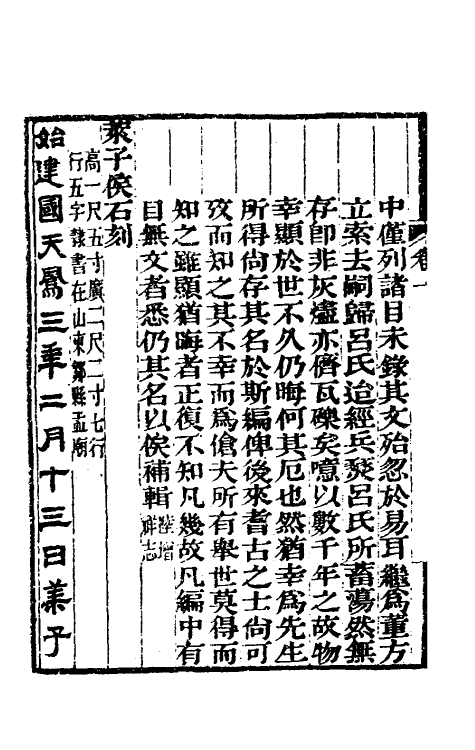 中僅列諸目未錄其文殆忽於易耳繼爲董方
立索去嗣歸呂氏迨經兵燹呂氏所蓄蕩然無
存卽非灰燼亦儕瓦礫矣噫以數千年之故物
幸顯於世不久仍晦何其厄也然猶幸爲先生
所得尙存其名於斯編俾後來耆古之士尙可
攷而知之其不幸而爲傖夫所有舉世莫得而
知之雖顯猶晦者正復不知凡幾故凡編中有
目無文者悉仍其名以俟補輯陸增祥志
萊子侯石刻
高一尺五寸廣二尺二寸七行
行五字隸書在山東鄒縣孟廟
始建國天鳳三年二月十三日萊子